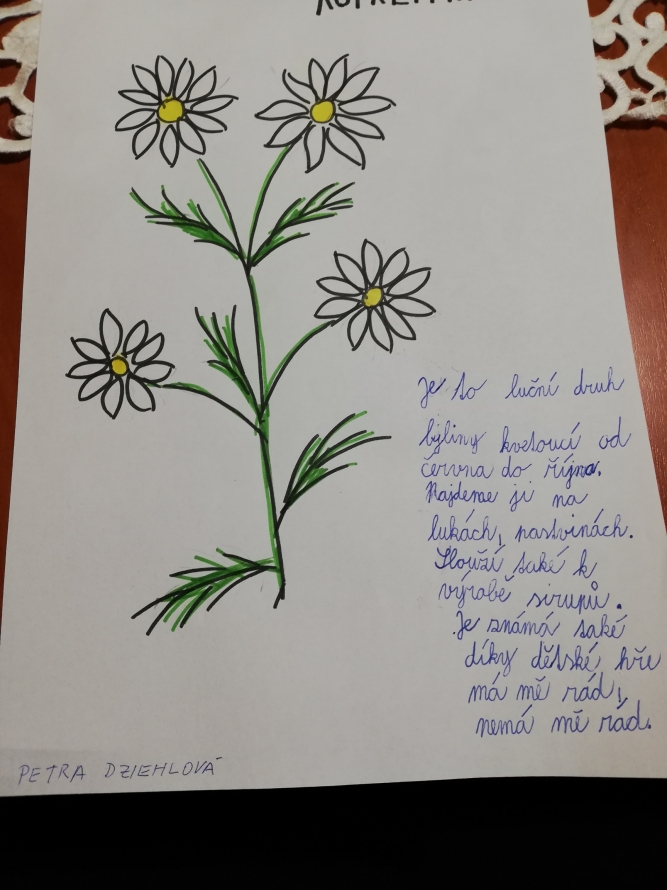 Je to luční druh
byliny kvetoucí od
června do října.
Najdeme ji na
lukách, pastvinách.
Slouží také k
výrobě sirupů.
Je známá také
díky dětské hře
má mě rád,
nemá mě rád.
PETRA DZIEHLOVÁ